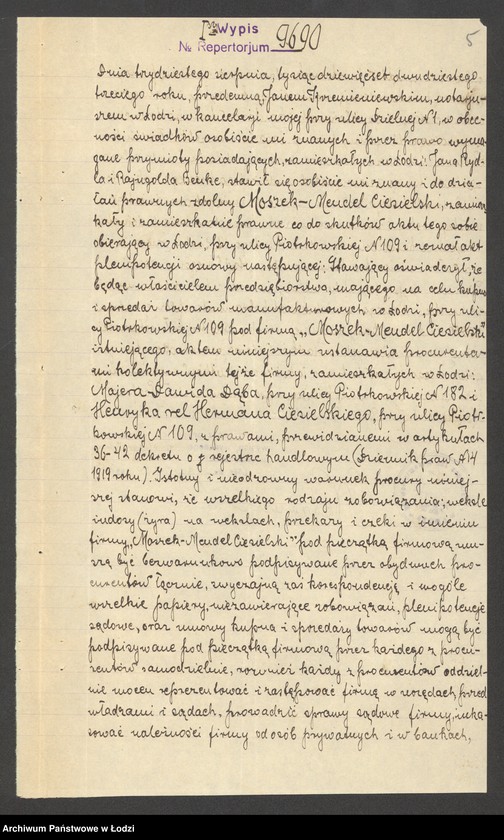 Iszy Wypis
№ Repertorjum 9690
5
Dnia trzydziestego sierpnia, tysiąc dziewięćset dwudziestego
trzeciego roku, przedemną Janem Krzemieniewskim, notarju-
szem w Łodzi, w kancelarji mojej przy ulicy Dzielnej № 1, w obec-
ności świadków osobiście mi znanych i przez prawo wyma-
gane przymioty posiadających, zamieszkałych w Łodzi: Jana Ryd-
la i Rajngolda Benke, stawił się osobiście mi znany i do dzia-
łań prawnych zdolny Moszek-Mendel Ciesielski, zamiesz-
kały i zamieszkanie prawne co do skutków aktu tego sobie
obierający w Łodzi, przy ulicy Piotrkowskiej № 109 i zeznał akt
plenipotencji osnowy następującej: Stawający oświadczył, że
będąc właścicielem przedsiębiorstwa, mającego na celu kupno
i sprzedaż towarów manufakturowych w Łodzi, przy uli-
cy Piotrkowskiej № 109 pod firmą „Moszek-Mendel Ciesielski"
istniejącego, aktem niniejszym ustanawia procurenta-
mi kolektywnymi tejże firmy, zamieszkałych w Łodzi:
Majera-Dawida Dąba, przy ulicy Piotrkowskiej № 182 i
Henryka vel Hermana Ciesielskiego, przy ulicy Piotr-
kowskiej № 109, z prawami, przewidzianemi w artykułach
36-42 dekretu o rejestrze handlowym (Dziennik praw № 14
1919 roku). Istotny i nieodzowny warunek procury niniej-
szej stanowi, że wszelkiego rodzaju zobowiązania; weksle
indosy (żyra) na wekslach, przekazy i czeki w imieniu
firmy „Moszek-Mendel Ciesielski" pod pieczątką firmową mu-
szą być bezwarunkowo podpisywane przez obydwuch pro-
curentów łącznie, zwyczajną zaś korespondencję i wogóle
wszelkie papiery, niezawierające zobowiązań, plenipotencje
sądowe, oraz umowy kupna i sprzedaży towarów mogą być
podpisywane pod pieczątką firmową przez każdego z procu-
rentów samodzielnie, również każdy z procurentów oddziel-
nie mocen reprezentować i zastępować firmę w urzędach, przed
władzami i sądach, prowadzić sprawy sądowe firmy, inka-
sować należności firmy od osób prywatnych i w bankach,
Archiwum Państwowe w Łodzi